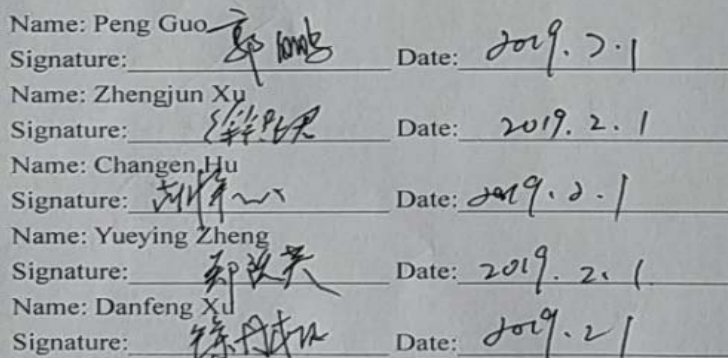 Name: Peng Guo
Signature: 郭 Date: 2019.2.1
Name: Zhengjun Xu
Signature: 徐 Date: 2019.2.1
Name: Changen Hu
Signature: Date: 2019.2.1
Name: Yueying Zheng
Signature: 郑 Date: 2019.2.1
Name: Danfeng Xu
Signature: 徐丹 Date: 2019.2.1